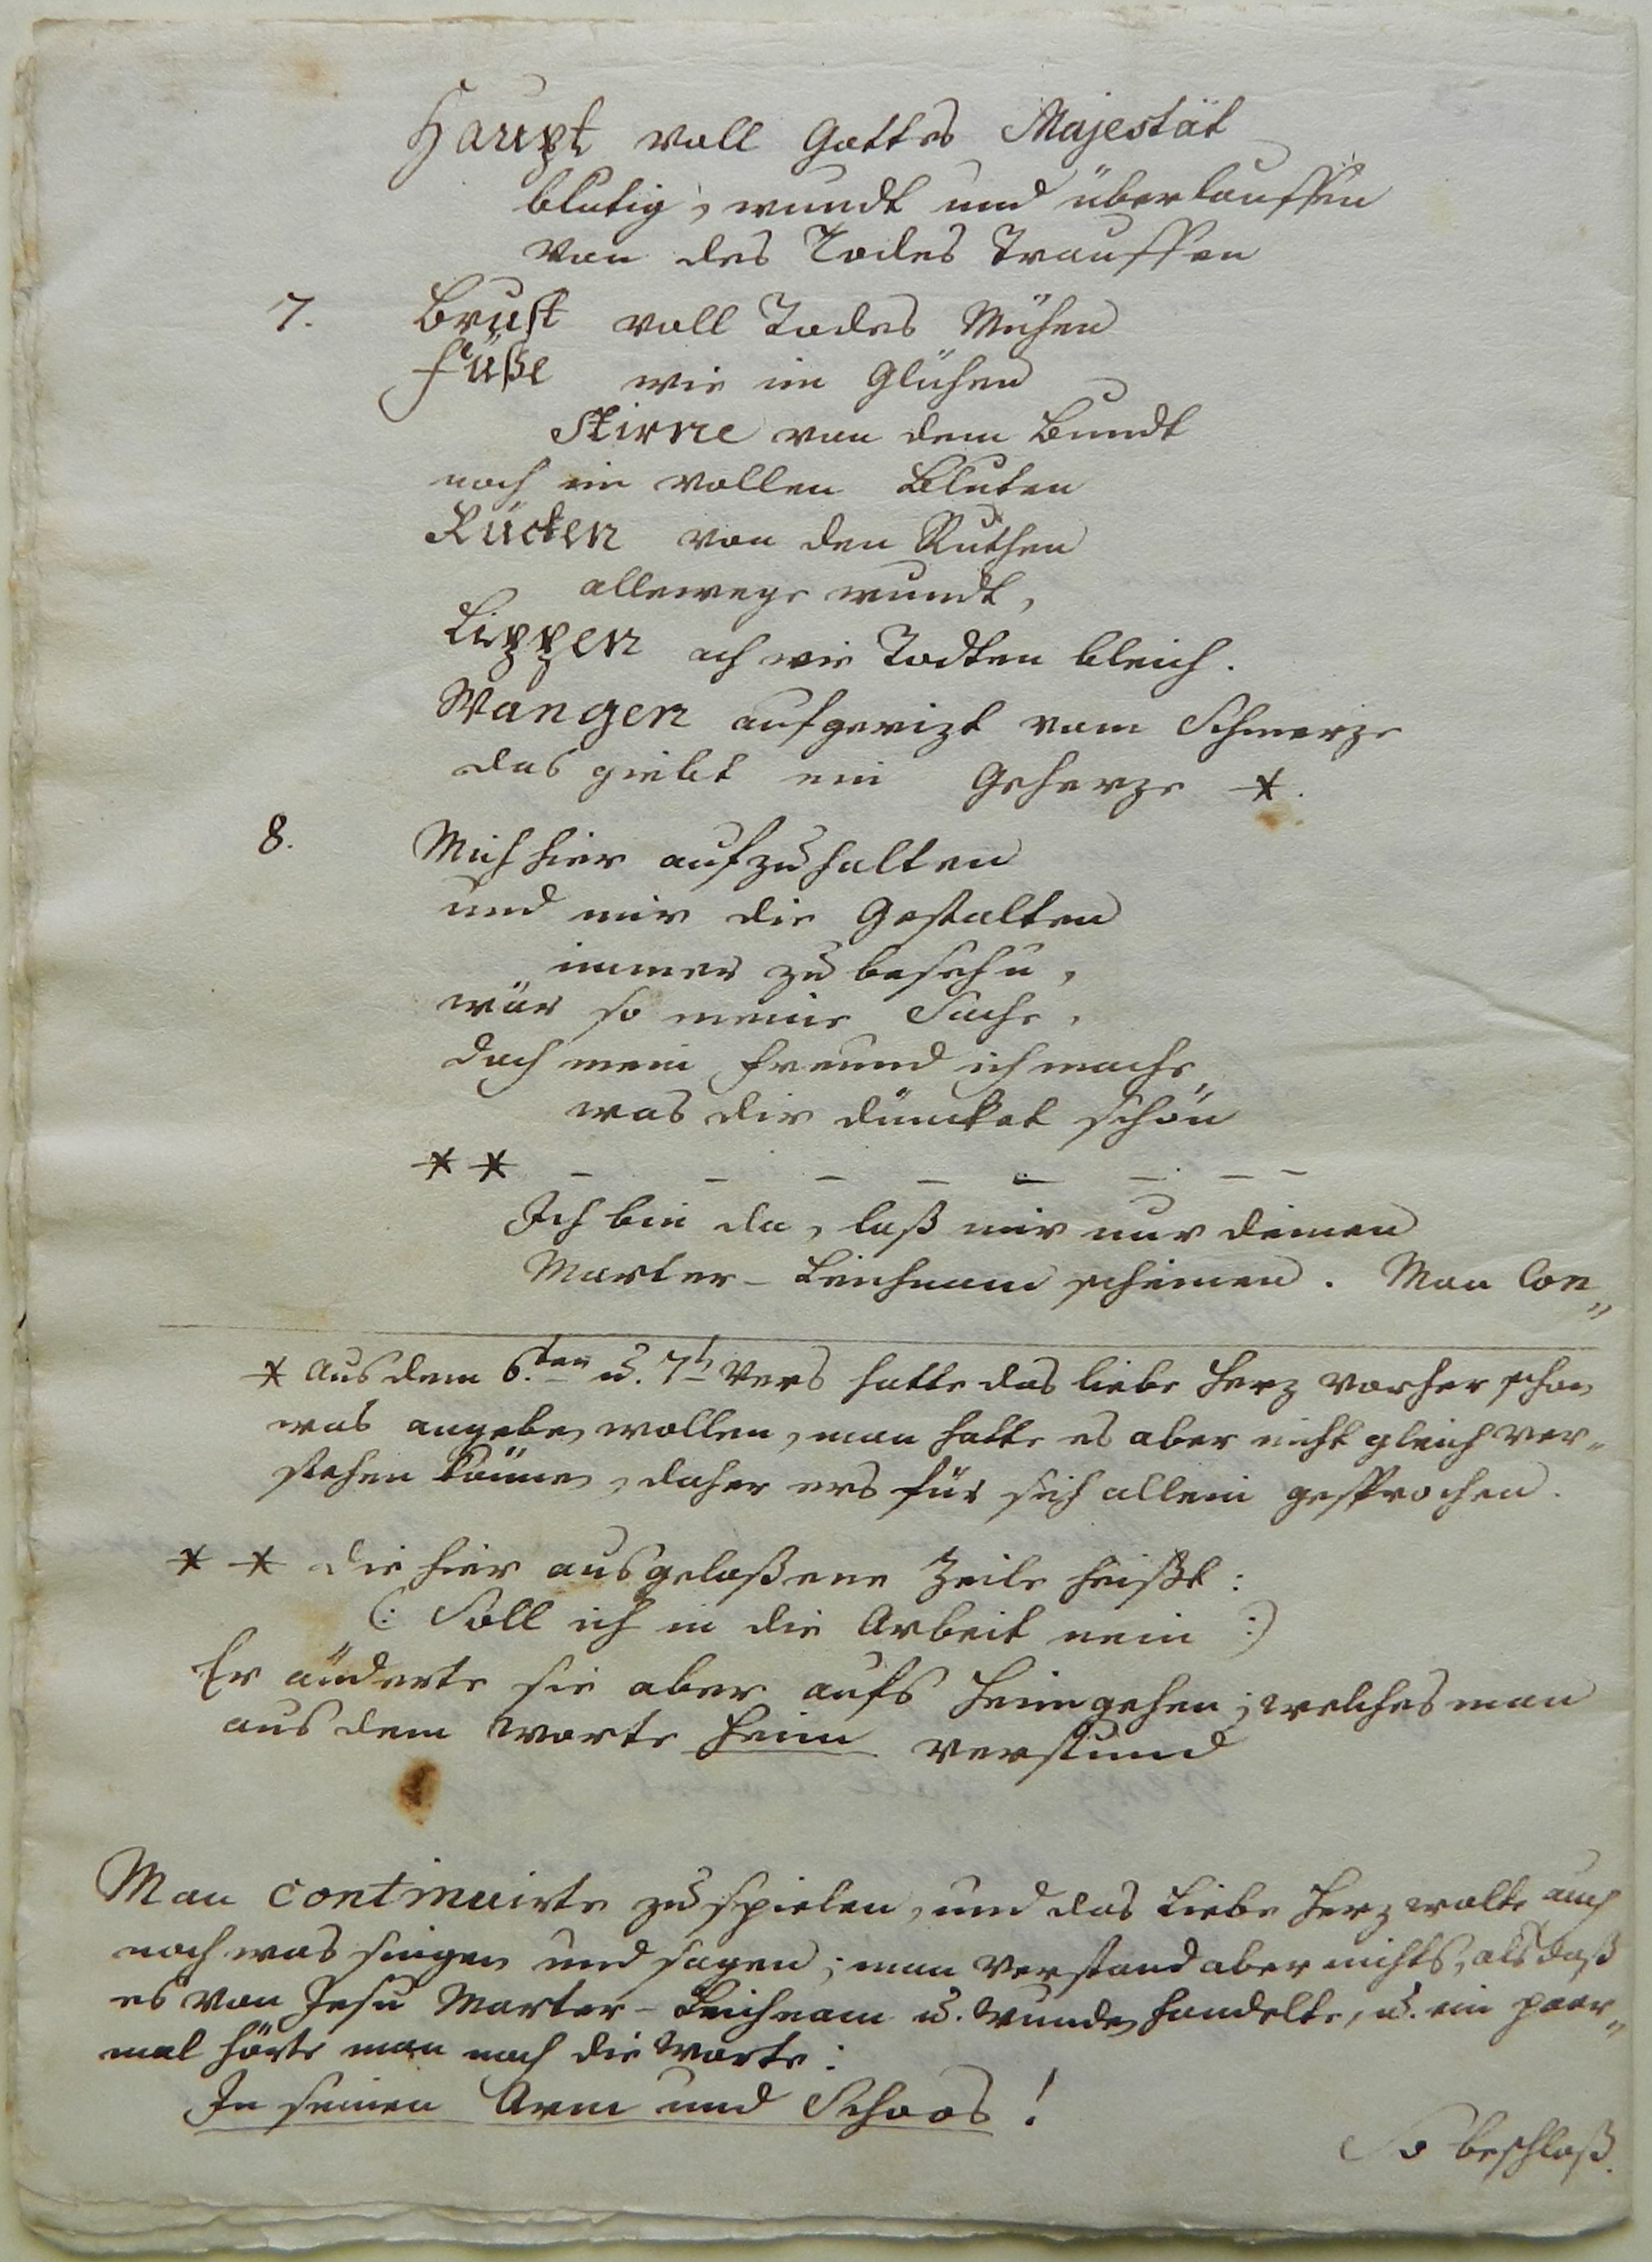 Haupt voll Gottes Majestät
blutig, wundt und überlauffen
von des Todes Trauffen
7. Brust voll Todes Mühen
Füße wie im Glühen
Stirne von dem Bundt
noch im vollen Bluten
Rücken von den Ruthen
allewege wundt,
Lippen ach wie Todten bleich.
Wangen aufgerizt vom Schmerze
das giebt ein Geherze *.
8. Mich hier aufzuhalten
und mir die Gestalten
immer zu besehn,
wär so meine Sache,
doch mein Freund ich mache
was dir düncket schön
** _ _ _ _ _ _ _ _
Ich bin da, laß mir nur deinen
Marter-Leichnam scheinen. Man Con„
* Aus dem 6.ten u. 7t Vers hatte das liebe Herz vorher schon
was angeben wollen, man hatte es aber nicht gleich ver„
stehen können, daher ers für sich allein gesprochen.
** die hier ausgelaßene Zeile heißt:
(: Soll ich in die Arbeit nein :)
Er änderte sie aber aufs Heimgehen; welches man
aus dem Worte Heim verstund
Man continuirte zu spielen, und das liebe Herz wolte auch
noch was singen und sagen; man verstand aber nichts, als daß
es von Jesu Marter-Leichnam u. Wunden handelte, u. ein paar„
mal hörte man noch die Worte:
In seinen Arm und Schoos!
So beschloß.